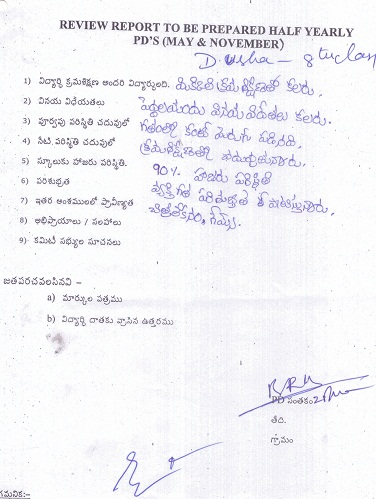 REVIEW REPORT TO BE PREPARED HALF YEARLY
PD'S (MAY & NOVEMBER)
D. usha - 8th class
1) విద్యార్థి క్రమశిక్షణ అందరి విద్యార్థులది. మితిమీరి క్రమశిక్షణతో కలరు.
2) వినయ విధేయతలు పెద్దలయందు వినయ విధేతలు కలరు.
3) పూర్వపు పరిస్థితి చదువులో గతంలో కంటే మెరుగు పడినది.
4) నేటి పరిస్థితి చదువులో క్రమశిక్షణతో చదువుతున్నారు.
5) స్కూలుకు హాజరు పరిస్థితి. 90% హాజరు పరిస్థితి
6) పరిశుభ్రత వ్యక్తిగత పరిశుభ్రత పాటిస్తున్నారు.
7) ఇతర అంశములలో ప్రావీణ్యత చిత్రలేఖనం, గేమ్స్.
8) అభిప్రాయాలు / సలహాలు
9) కమిటీ సభ్యుల సూచనలు
జతపరచవలసినవి –
a) మార్కుల పత్రము
b) విద్యార్థి దాతకు వ్రాసిన ఉత్తరము
PD సంతకం
తేది.
గ్రామం
గమనిక:–